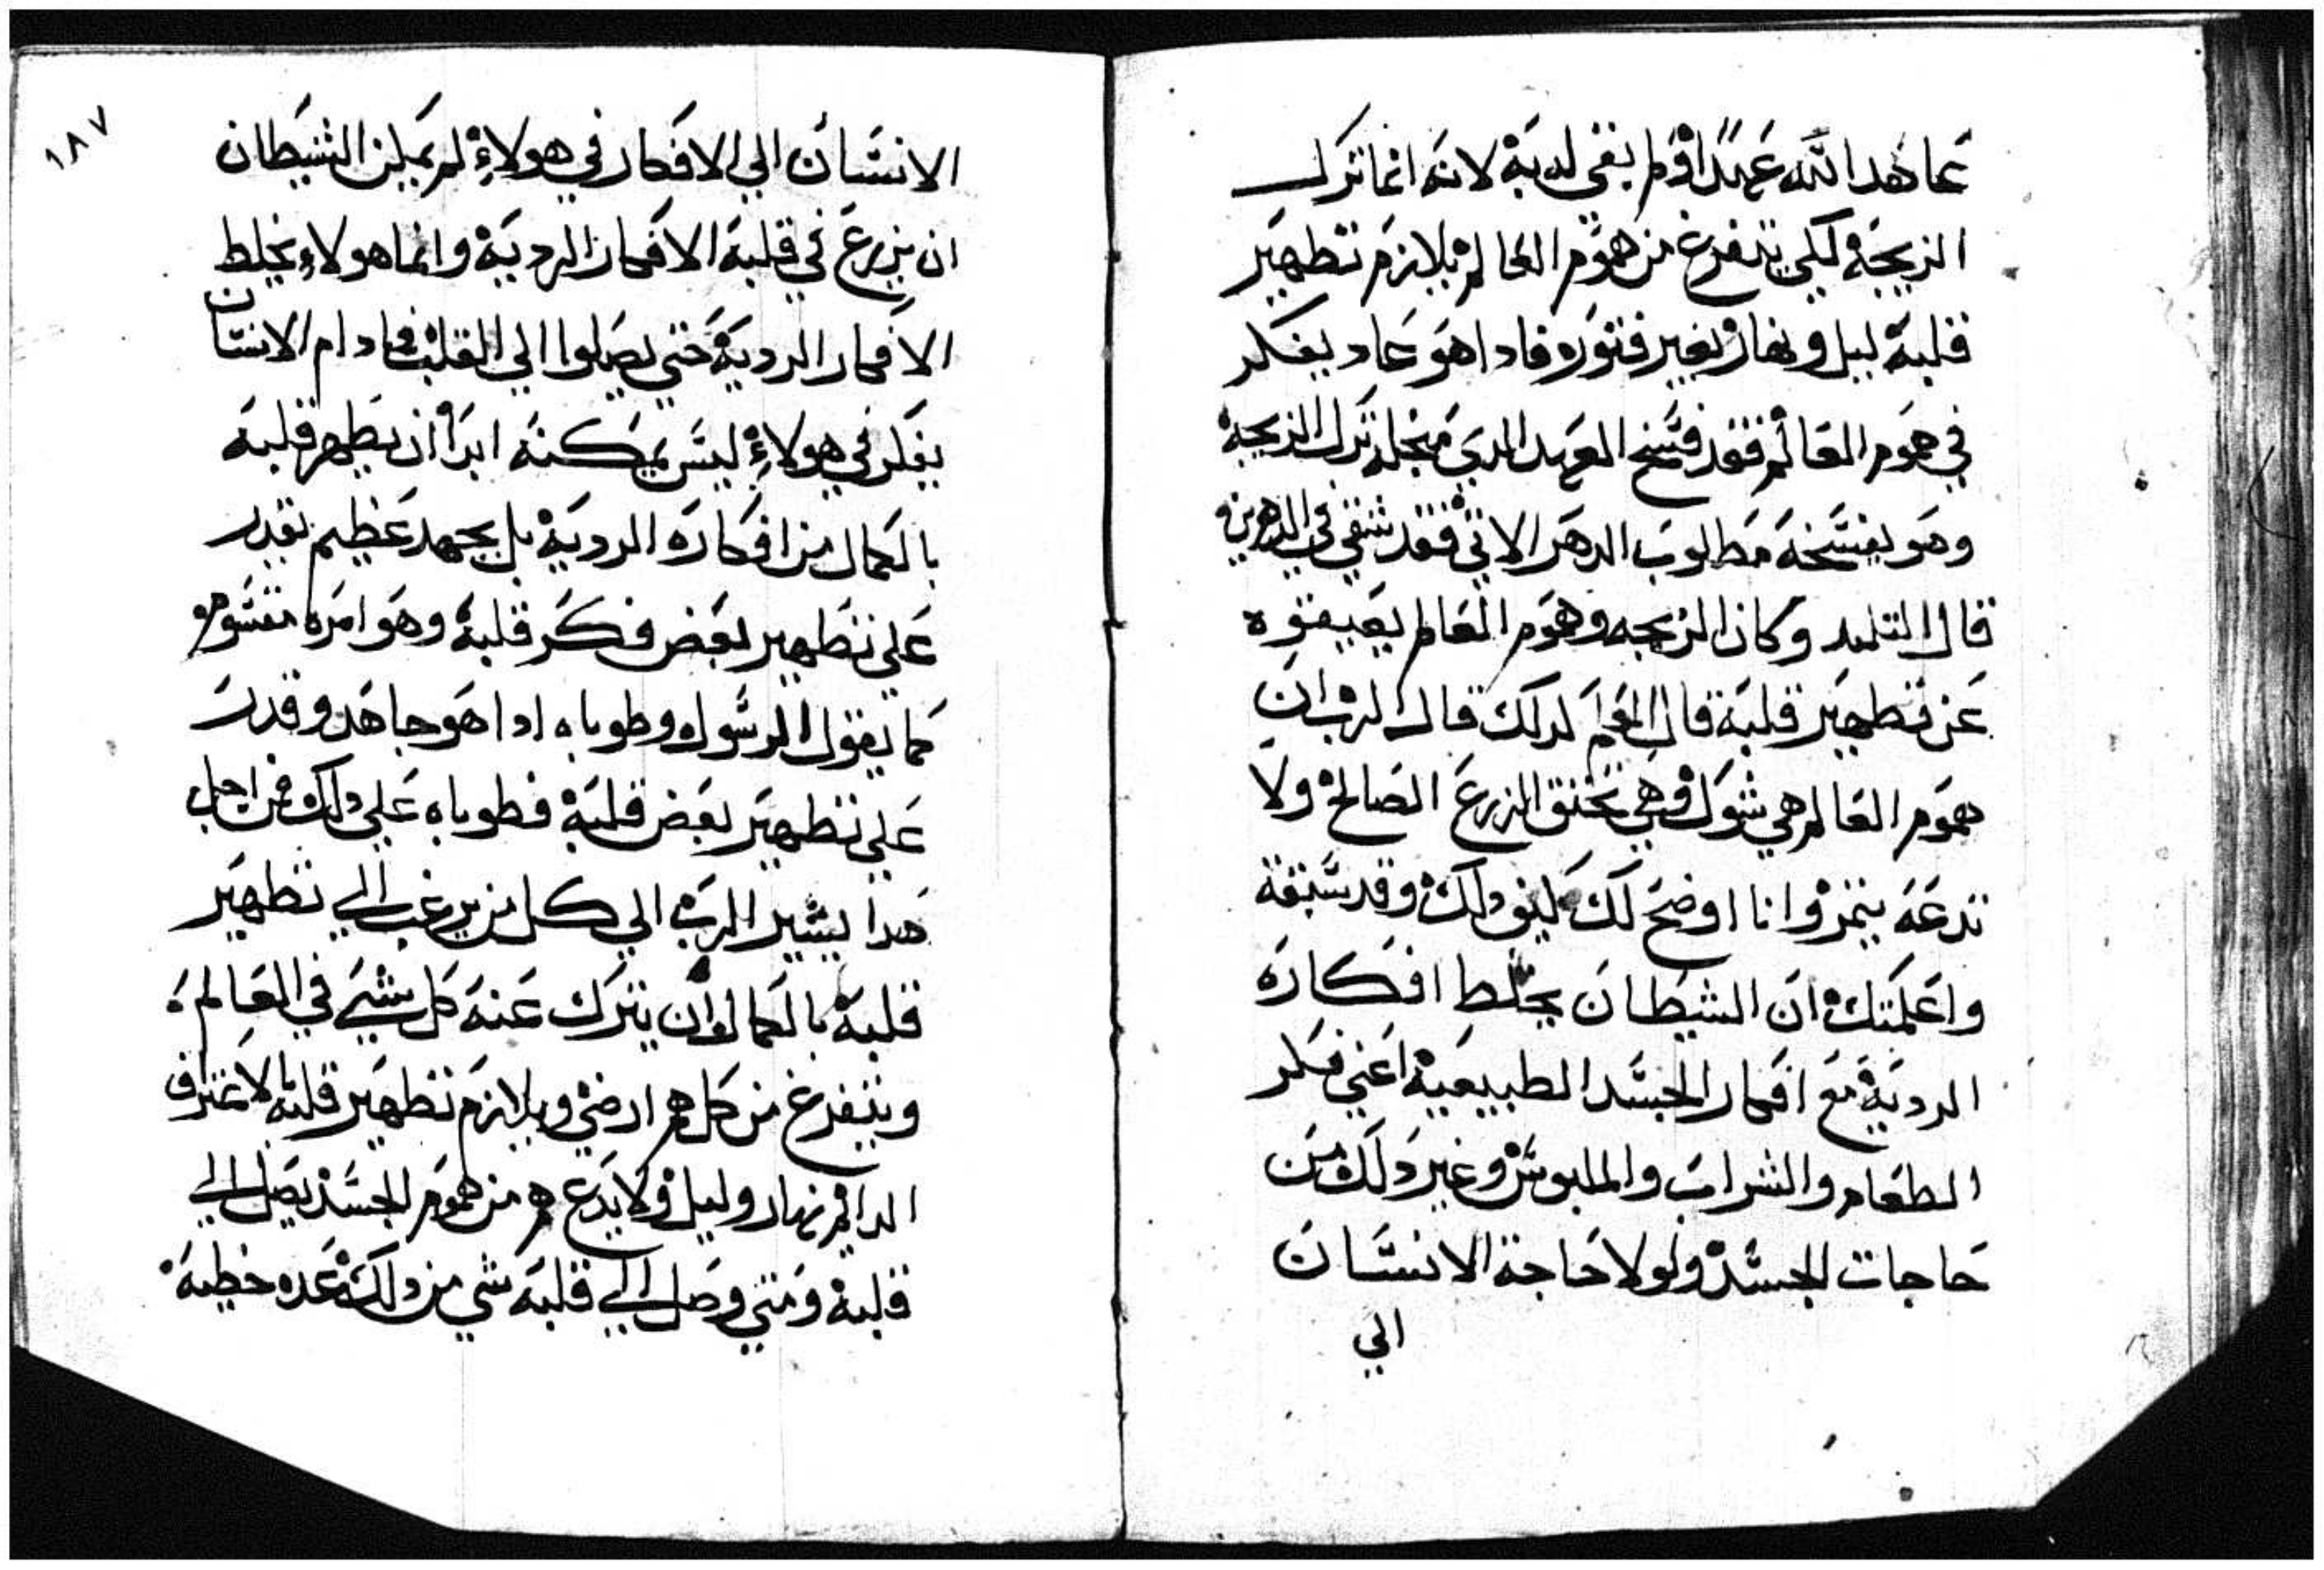 عاهد الله عهدًا ولم يفي لديه لانه انما ترك
الزيجة لكي يتفرغ من هموم العالم ويلازم تطهير
قلبه ليل ونهار بغير فتور فادا هو عاد يفكر
في هموم العالم فقد فسخ العهد الدي من اجله ترك الزيجة
وهو بفسخه مطالوب الدهر الاتي فقد شقي في الدهرين
قال التلميد وكان الزيجه وهموم العالم يعيقوه
عن تطهير قلبه قال المعلم لدلك قال الرب ان
هموم العالم هي شوك وهي تخنق الزرع الصالح ولا
تدعه ينمو وانا اوضح لك كيف دلك وقد سبقة
واعلمتك ان الشيطان يخلط افكاره
الرديه مع افكار الجسد الطبيعيه اعني فكر
الطعام والشراب والملبوس وغير دلك من
حاجات الجسد ولولا حاجة الانسان
الي
١٨٧
الانسان الي الافكار في هولاء لم يمكن الشيطان
ان يزرع في قلبه الافكار الرديه وانما هولاء يخلط
الافكار الرديه حتي يصلوا الي القلب فما دام الانسان
يفكر في هولاء ليس يمكنه ابدا ان يطهر قلبه
بالكمال من افكاره الرديه بل بجهد عظيم يقدر
علي تطهير بعض فكر قلبه وهو امره مقسوم
كما يقول الرسول وطوباه ادا هو جاهد وقدر
علي تطهير بعض قلبه فطوباه علي دلك فمن اجل
هدا يشير الرب الي كل من يرغب الي تطهير
قلبه بالكمال ان يترك عنه كل شي في العالم
ويتفرغ من كل هم ارضي ويلازم تطهير قلبه بالاعتراف
الدايم نهار وليل ولا يدع هم من هموم الجسد يصل الي
قلبه ومتي وصل الي قلبه شي من دلك عده خطيه